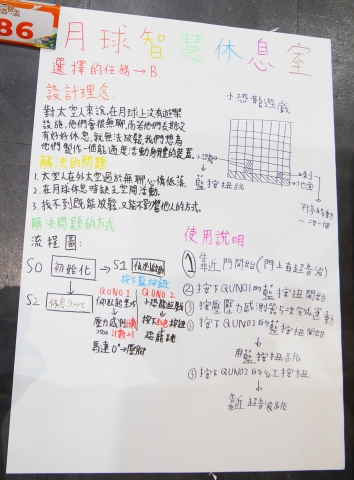 86
月球智慧休息室
選擇的任務→B
設計理念:
對太空人來說,在月球上沒有遊樂
設施,他們會很無聊,而若他們長期沒
有好好休息,就無法放鬆,我們想為
他們製作一個能適度活動身體的裝置.
解決的問題
1.太空人在外太空過於無聊,心情低落.
2.在月球休息時缺乏空間活動.
3.找不到既能放鬆又能不影響他人的方式.
解決問題的方式
流程圖:
S0 初始化 → S1
按下藍按鈕
S2
QUNO1 QUNO2
小恐龍遊戲
壓力感測
按下紅色按鈕
計數+1
恐龍跳
馬達0°
小恐龍遊戲
小恐龍
藍按鈕
地圖
使用說明
①靠近門開始(門上有超音波)
②按下QUNO1的藍按鈕開始
③按壓壓力感測器5次完成運動
①按下QUNO2的藍按鈕開始
用藍按鈕
③按下QUNO2的紅按鈕
靠近超音波